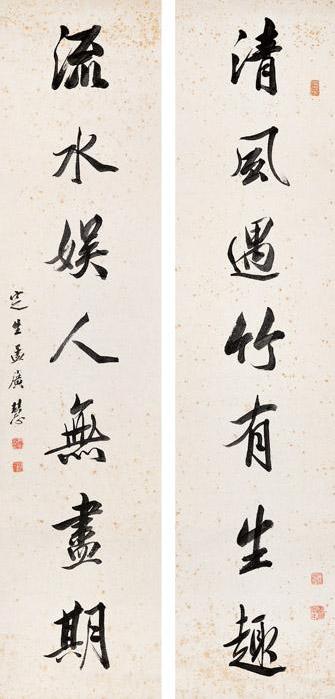 清風遇竹有生趣
流水娛人無盡期
定生孟廣慧